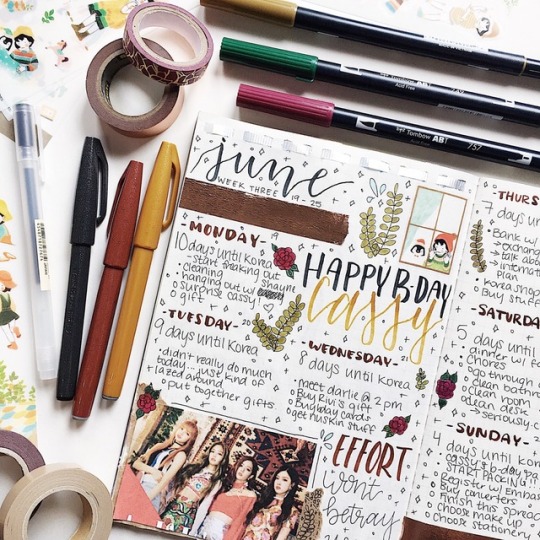 Tombow ABT
Acid Free
Tombow ABT 757
june
WEEK THREE 19-25
-MONDAY- 19
10 days until Korea
- start freaking out
cleaning
hanging out w/ shayne
surprise cassy!
gift
HAPPY B-DAY
Cassy
-TUESDAY- 20
9 days until Korea
didn't really do much
today... just kind of
lazed around
put together gifts
WEDNESDAY- 21
8 days until Korea
meet darlie @ 2pm
Buy Kivi's gift
Bug bday cards
get nuskin stuff
EFFORT
won't
betray
THURS
7 days until
Bank w/
exchang
talk abo
internati
plan
Korea shop
Buy stuff
-SATURDA
5 days until
dinner w/ fa
Chores
Go through c
clean bathr
clean room
clean desk
seriously c
-SUNDAY-
4 days until Kor
cassy's b-day
START PACKING!
Register w/ Embas
Buy converters
Finish this spread
Choose make up
Choose stationery